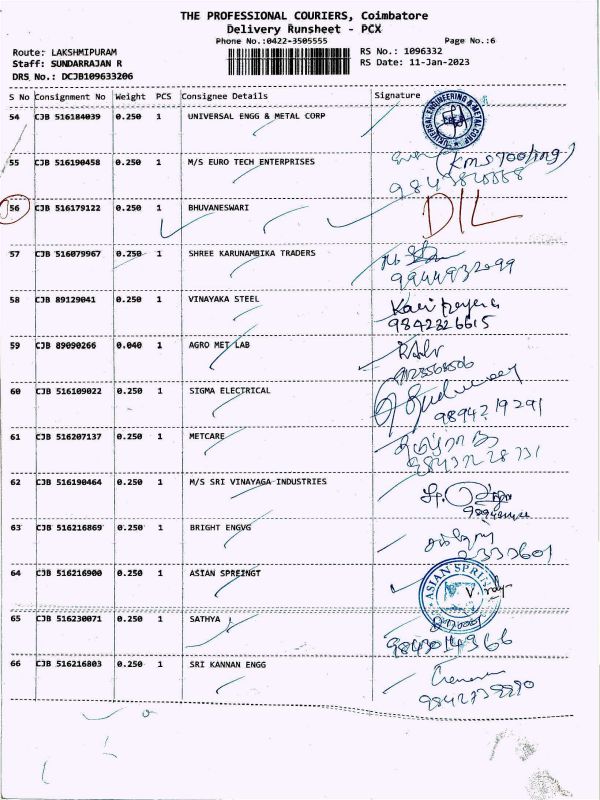 THE PROFESSIONAL COURIERS, Coimbatore
Delivery Runsheet - PCX
Phone No.:0422-3505555 Page No.:6
Route: LAKSHMIPURAM RS No.: 1096332
Staff: SUNDARRAJAN R RS Date: 11-Jan-2023
DRS No.: DCJB109633206
S No Consignment No Weight PCS Consignee Details Signature
54 CJB 516184039 0.250 1 UNIVERSAL ENGG & METAL CORP
55 CJB 516190458 0.250 1 M/S EURO TECH ENTERPRISES (KMS Tooling)
56 CJB 516179122 0.250 1 BHUVANESWARI DIL
57 CJB 516079967 0.250 1 SHREE KARUNAMBIKA TRADERS
9944932099
58 CJB 89129041 0.250 1 VINAYAKA STEEL
9842326615
59 CJB 89090266 0.040 1 AGRO MET LAB
60 CJB 516109022 0.250 1 SIGMA ELECTRICAL
9894219291
61 CJB 516207137 0.250 1 METCARE
62 CJB 516190464 0.250 1 M/S SRI VINAYAGA INDUSTRIES
63 CJB 516216869 0.250 1 BRIGHT ENGVG
2333601
64 CJB 516216900 0.250 1 ASIAN SPREINGT ASIAN
65 CJB 516230071 0.250 1 SATHYA
9843014366
66 CJB 516216803 0.250 1 SRI KANNAN ENGG